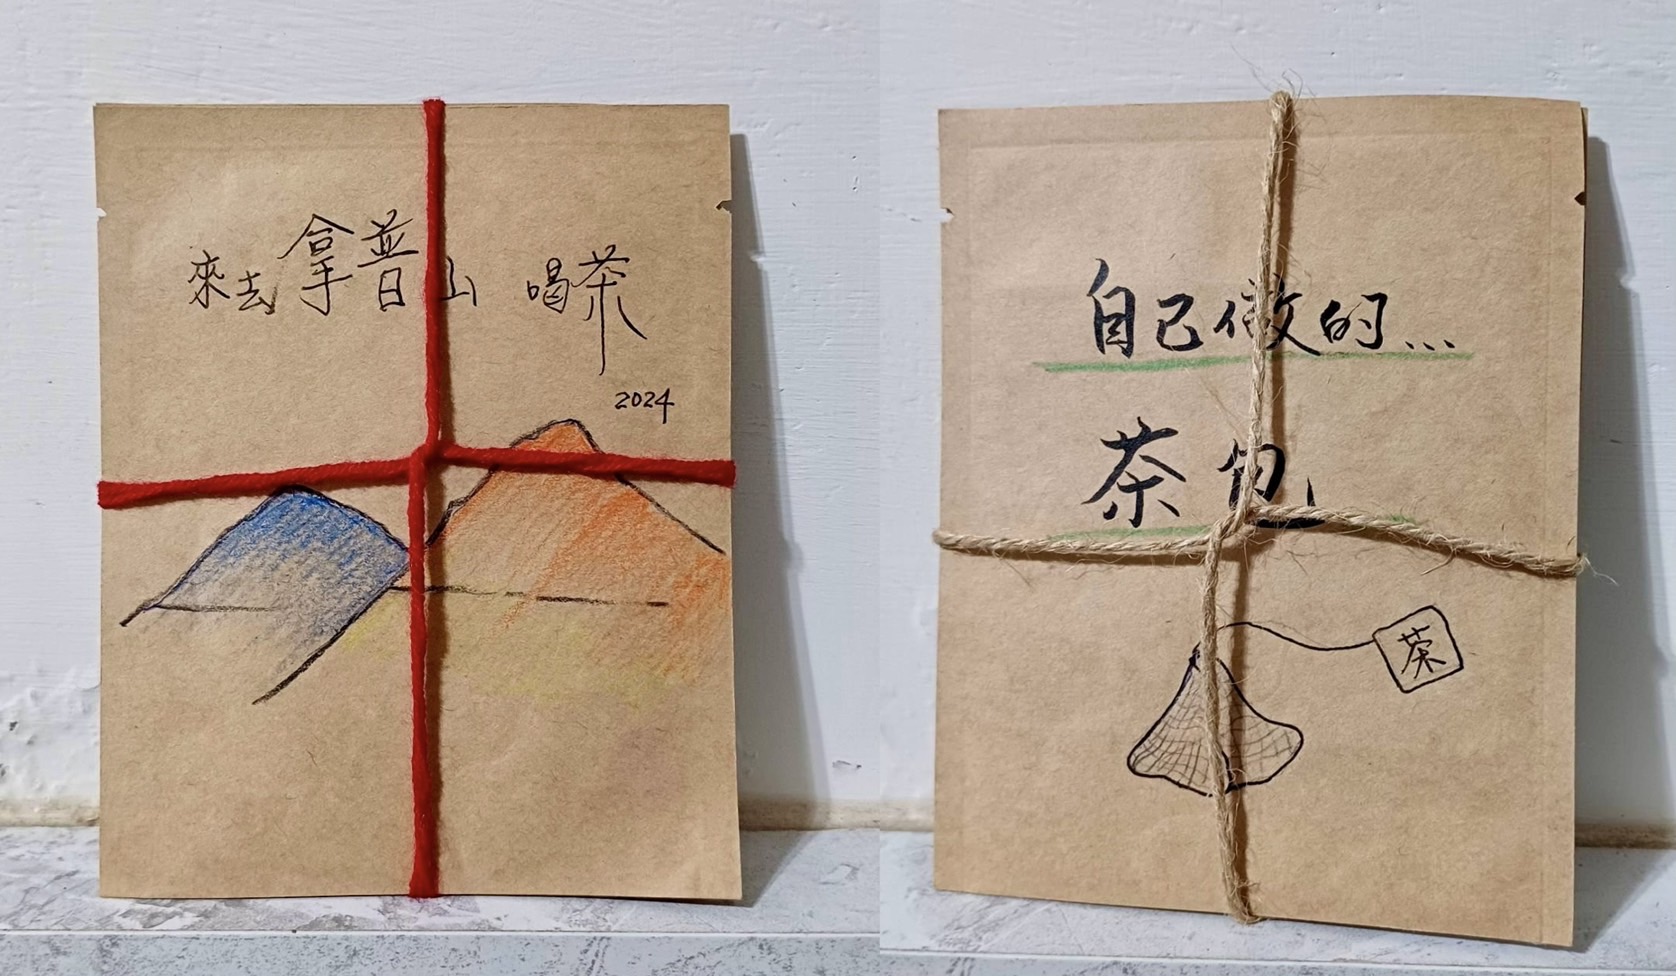 來去拿普山 喝茶
2024
自己做的...
茶包
茶